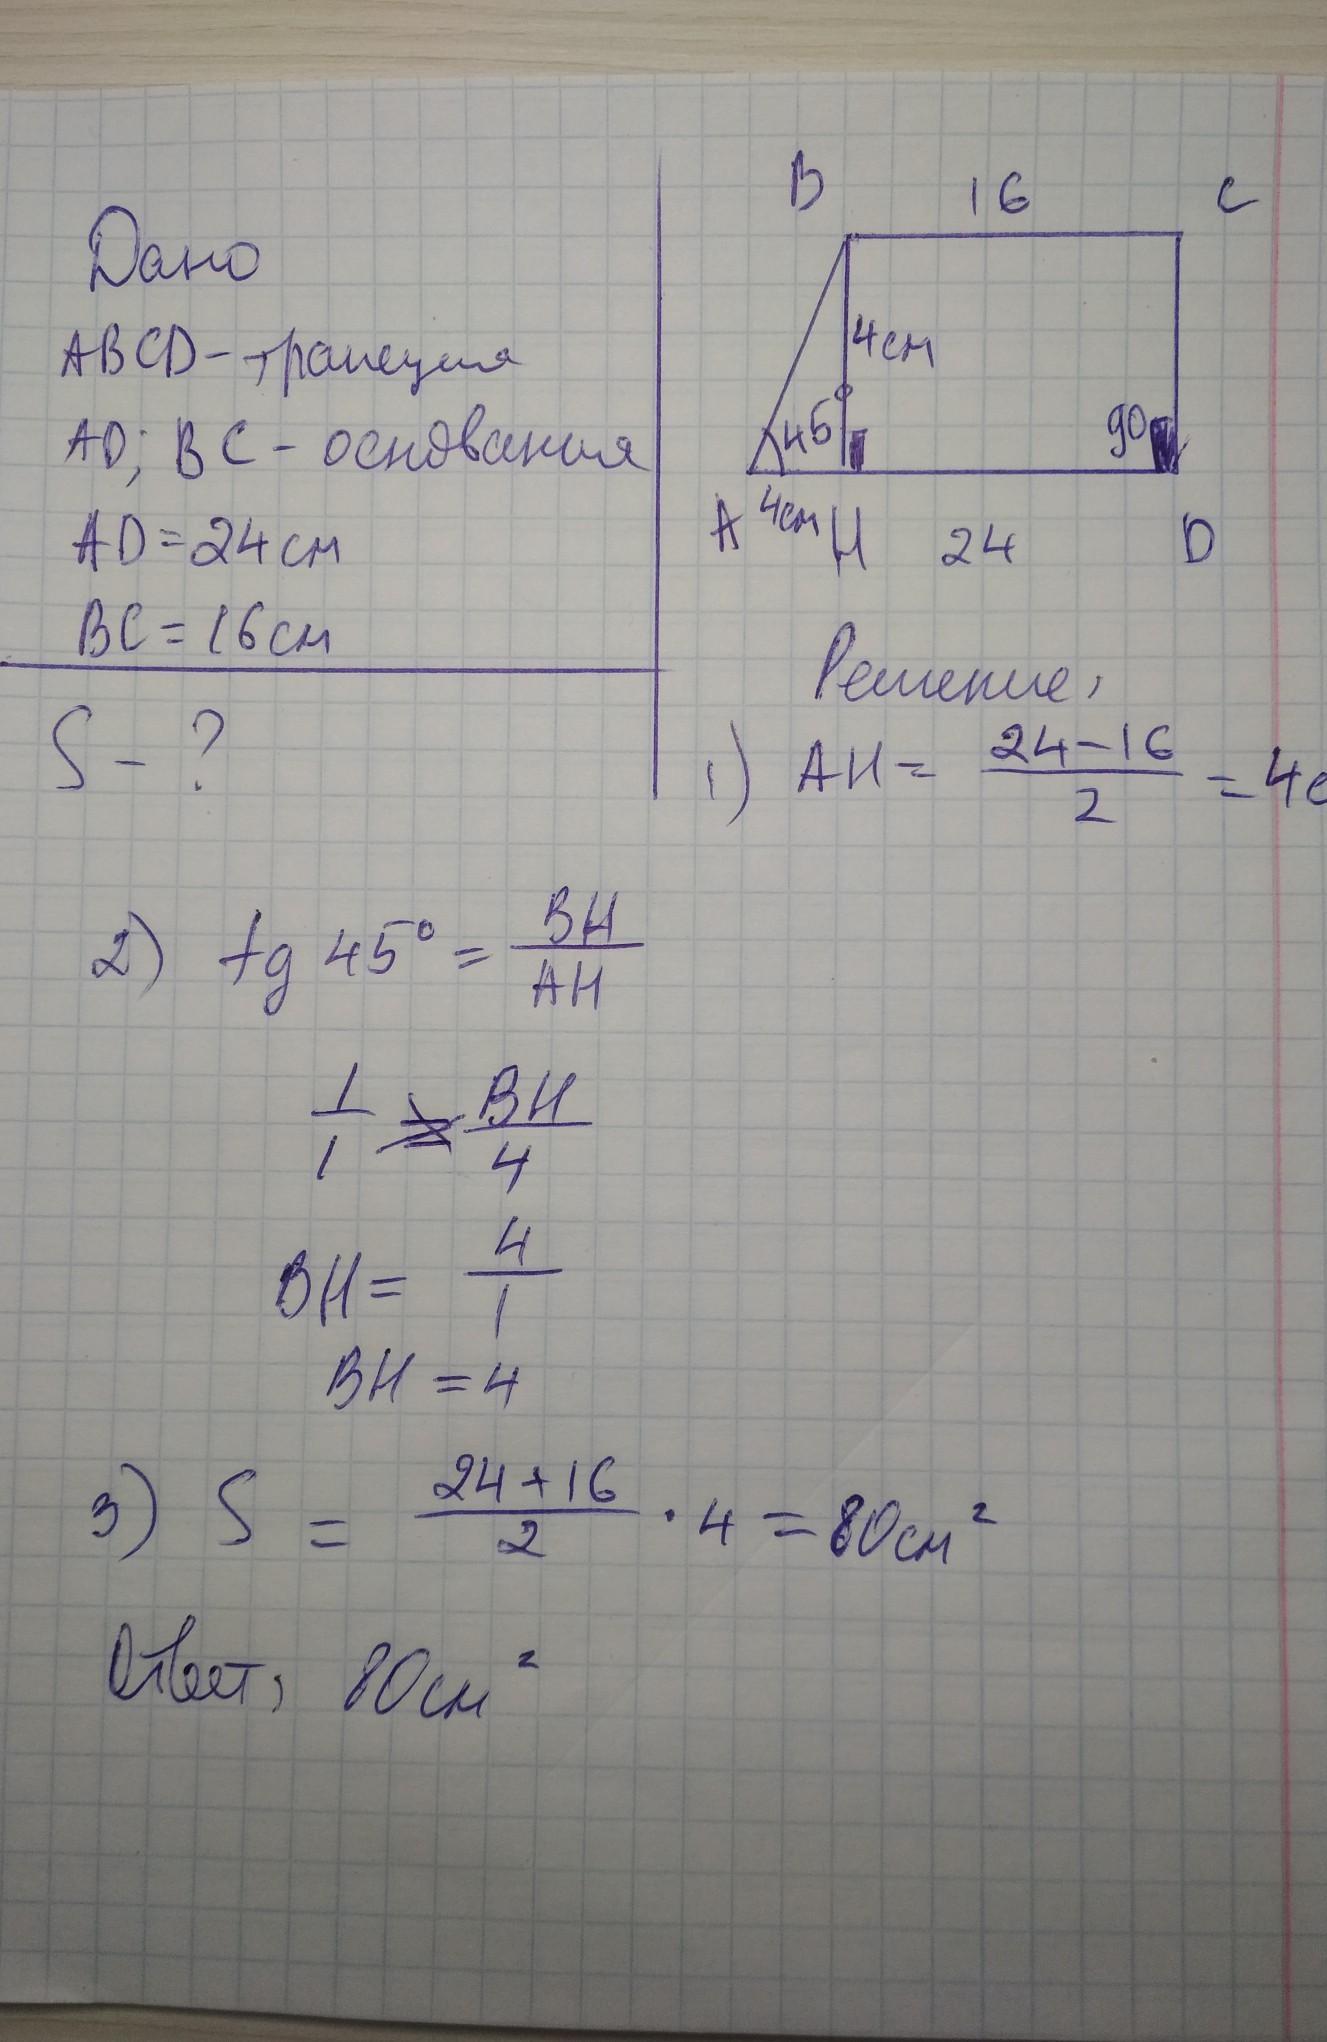 Дано
ABCD - трапеция
AD; BC - основания
AD = 24 см
BC = 16 см
S - ?
B 16 C
4 см
45° 90
A 4см H 24 D
Решение,
1) AH = (24 - 16)/2 = 4с
2) tg 45° = BH/AH
1/1 = BH/4
BH = 4/1
BH = 4
3) S = (24 + 16)/2 · 4 = 80 см²
Ответ, 80 см²